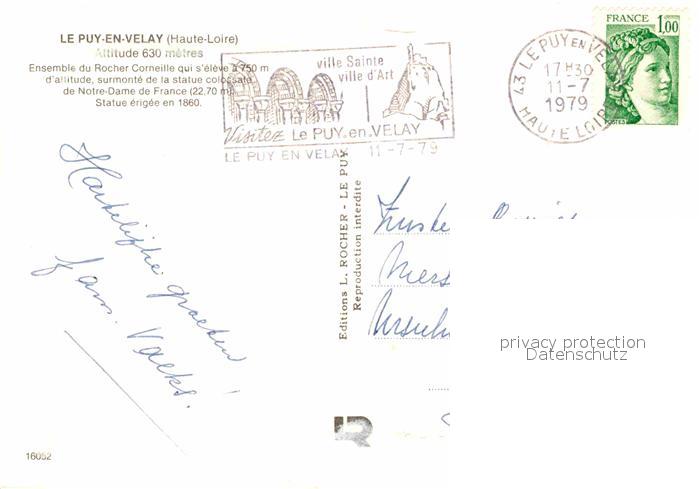 LE PUY-EN-VELAY (Haute-Loire)
Altitude 630 mètres
Ensemble du Rocher Corneille qui s'élève à 750 m
d'altitude, surmonté de la statue colossale
de Notre-Dame de France (22,70 m)
Statue érigée en 1860.
ville Sainte
ville d'Art
Visitez Le PUY.en.VELAY
LE PUY EN VELAY 11-7-79
43 LE PUY EN VELAY
17H30
11-7
1979
HAUTE LOIRE
FRANCE
1,00
POSTES
Hartelijke groeten
fam.
Editions L. ROCHER - LE PUY
Reproduction interdite
privacy protection
Datenschutz
LR
16052